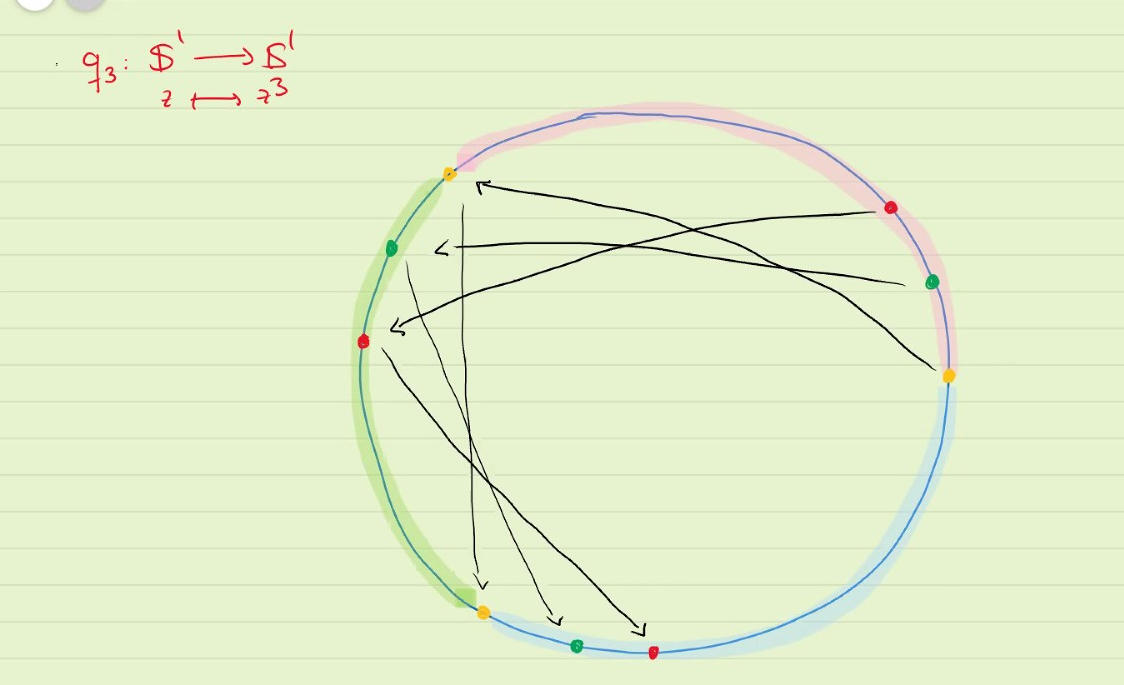 q₃: 𝕊¹ ⟶ 𝕊¹
z ⟼ z³